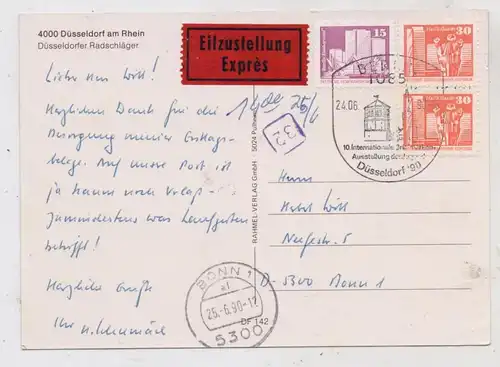 4000 Düsseldorf am Rhein
Düsseldorfer Radschläger
Eilzustellung
Exprès
15
30
30
BERLIN
1085
24.06.
10. Internationale
Ausstellung
Düsseldorf '90
32
25/6
Lieber Herr Witt!
Herzlichen Dank für die
Besorgung meiner Ersttags-
belege. Auf unsere Post ist
ja kaum noch Verlaß –
zumindestens was Laufzeiten
betrifft!
Herzliche Grüße
Ihr
RAHMEL-VERLAG GmbH · 5024 Pulheim
DF 142
Herrn
Witt
5
D-5300 Bonn 1
BONN 1
af
25.-6.90-12
5300